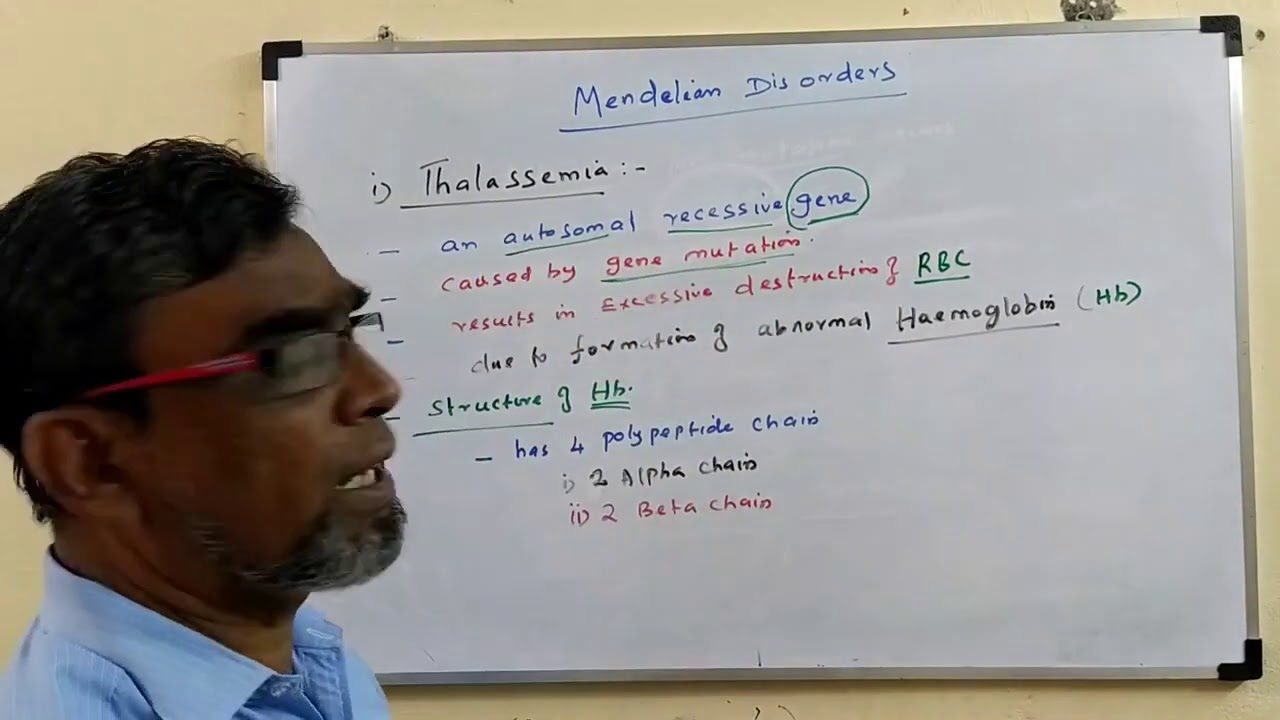 Mendelian Disorders
i) Thalassemia :-
- an autosomal recessive gene
- caused by gene mutation.
- results in Excessive destruction of RBC
due to formation of abnormal Haemoglobin (Hb)
- Structure of Hb.
- has 4 polypeptide chain
i) 2 Alpha chain
ii) 2 Beta chain